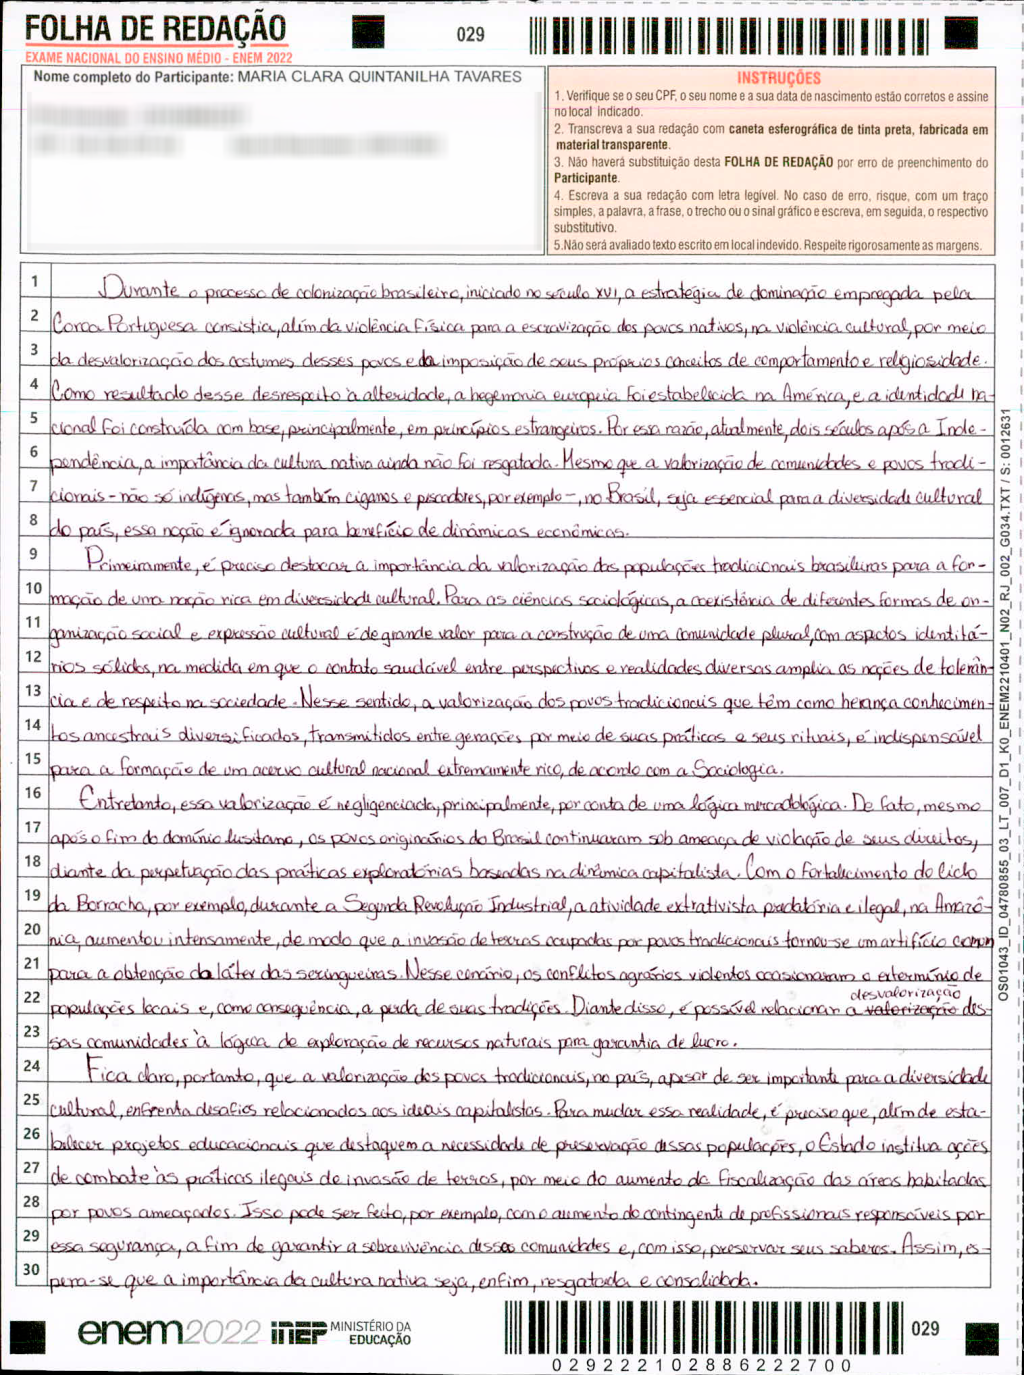 FOLHA DE REDAÇÃO
EXAME NACIONAL DO ENSINO MÉDIO - ENEM 2022
029
Nome completo do Participante: MARIA CLARA QUINTANILHA TAVARES
INSTRUÇÕES
1. Verifique se o seu CPF, o seu nome e a sua data de nascimento estão corretos e assine
no local indicado.
2. Transcreva a sua redação com caneta esferográfica de tinta preta, fabricada em
material transparente.
3. Não haverá substituição desta FOLHA DE REDAÇÃO por erro de preenchimento do
Participante.
4. Escreva a sua redação com letra legível. No caso de erro, risque, com um traço
simples, a palavra, a frase, o trecho ou o sinal gráfico e escreva, em seguida, o respectivo
substitutivo.
5.Não será avaliado texto escrito em local indevido. Respeite rigorosamente as margens.
1 Durante o processo de colonização brasileiro, iniciado no século XVI, a estratégia de dominação empregada pela
2 Coroa Portuguesa consistia, além da violência física para a escravização dos povos nativos, na violência cultural, por meio
3 da desvalorização dos costumes desses povos e da imposição de seus próprios conceitos de comportamento e religiosidade.
4 Como resultado desse desrespeito à alteridade, a hegemonia europeia foi estabelecida na América, e a identidade na-
5 cional foi construída com base, principalmente, em princípios estrangeiros. Por essa razão, atualmente, dois séculos após a Inde-
6 pendência, a importância da cultura nativa ainda não foi resgatada. Mesmo que a valorização de comunidades e povos tradi-
7 cionais - não só indígenas, mas também ciganos e pescadores, por exemplo -, no Brasil, seja essencial para a diversidade cultural
8 do país, essa noção é ignorada para benefício de dinâmicas econômicas.
9 Primeiramente, é preciso destacar a importância da valorização das populações tradicionais brasileiras para a for-
10 mação de uma nação rica em diversidade cultural. Para as ciências sociológicas, a coexistência de diferentes formas de or-
11 ganização social e expressão cultural é de grande valor para a construção de uma comunidade plural, com aspectos identitá-
12 rios sólidos, na medida em que o contato saudável entre perspectivas e realidades diversas amplia as noções de tolerân-
13 cia e de respeito na sociedade. Nesse sentido, a valorização dos povos tradicionais que têm como herança conhecimen-
14 tos ancestrais diversificados, transmitidos entre gerações por meio de suas práticas e seus rituais, é indispensável
15 para a formação de um acervo cultural nacional extremamente rico, de acordo com a Sociologia.
16 Entretanto, essa valorização é negligenciada, principalmente, por conta de uma lógica mercadológica. De fato, mesmo
17 após o fim do domínio lusitano, os povos originários do Brasil continuaram sob ameaça de violação de seus direitos,
18 diante da perpetuação das práticas exploratórias baseadas na dinâmica capitalista. Com o fortalecimento do Ciclo
19 da Borracha, por exemplo, durante a Segunda Revolução Industrial, a atividade extrativista predatória e ilegal, na Amazô-
20 nia, aumentou intensamente, de modo que a invasão de terras ocupadas por povos tradicionais tornou-se um artifício comum
21 para a obtenção do látex das seringueiras. Nesse cenário, os conflitos agrários violentos ocasionaram o extermínio de
desvalorização
22 populações locais e, como consequência, a perda de suas tradições. Diante disso, é possível relacionar a valorização des-
23 sas comunidades à lógica de exploração de recursos naturais para garantia de lucro.
24 Fica claro, portanto, que a valorização dos povos tradicionais, no país, apesar de ser importante para a diversidade
25 cultural, enfrenta desafios relacionados aos ideais capitalistas. Para mudar essa realidade, é preciso que, além de esta-
26 belecer projetos educacionais que destaquem a necessidade de preservação dessas populações, o Estado institua ações
27 de combate às práticas ilegais de invasão de terras, por meio do aumento da fiscalização das áreas habitadas
28 por povos ameaçados. Isso pode ser feito, por exemplo, com o aumento do contingente de profissionais responsáveis por
29 essa segurança, a fim de garantir a sobrevivência dessas comunidades e, com isso, preservar seus saberes. Assim, es-
30 pera-se que a importância da cultura nativa seja, enfim, resgatada e consolidada.
OS01043_ID_04780855_03_LT_007_D1_K0_ENEM2210401_N02_RJ_002_G034.TXT / S: 0012631
enem2022 inep MINISTÉRIO DA
EDUCAÇÃO
029
0292221028862227 00